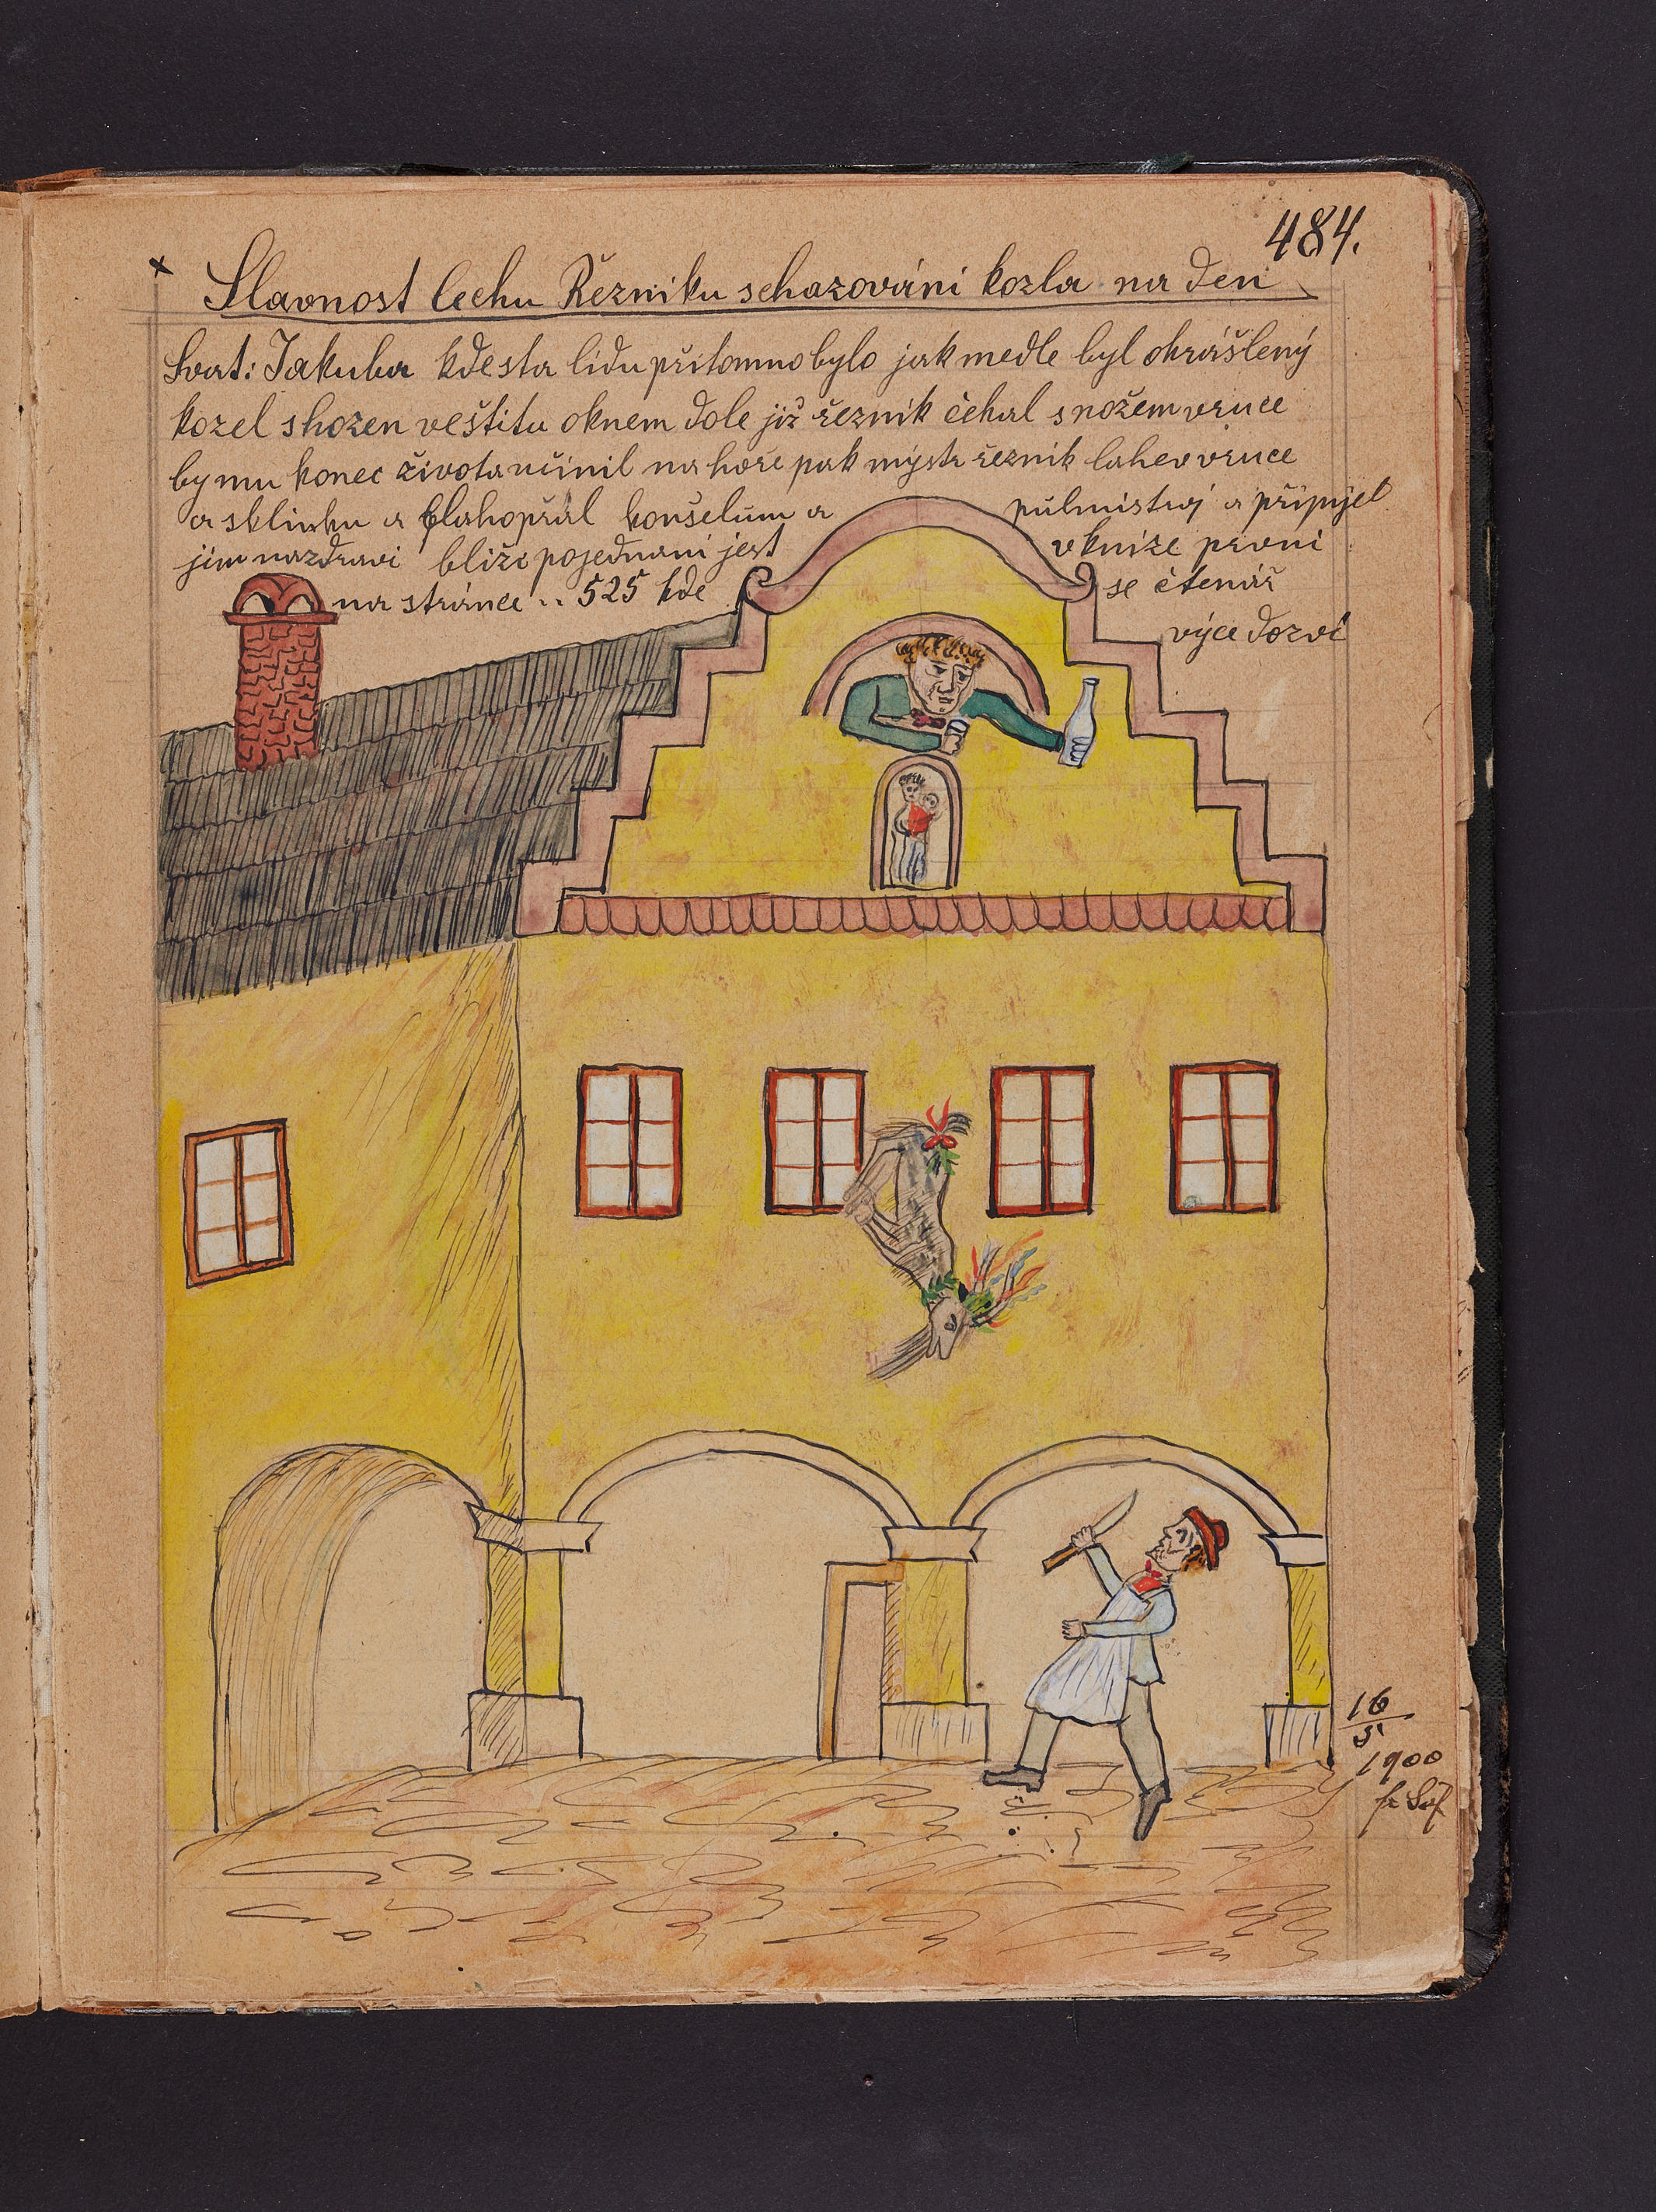 484.
× Slavnost Cechu Řezniku schazováni kozla na den
Svat: Jakuba kdesta lidu přitomno bylo jak medle byl okrášlený
kozel shozen veštitu oknem dole již řeznik čekal s nožem vruce
by mu konec života učinil na hoře pak mystr řeznik lahev vruce
a sklinku a blahopřál konšelům a pulmistruj a připyjel
jim nazdravi bliže pojednani jest v knize prvni
na stránce .. 525 kde se čtenář
vyce dozví
16
5
1900